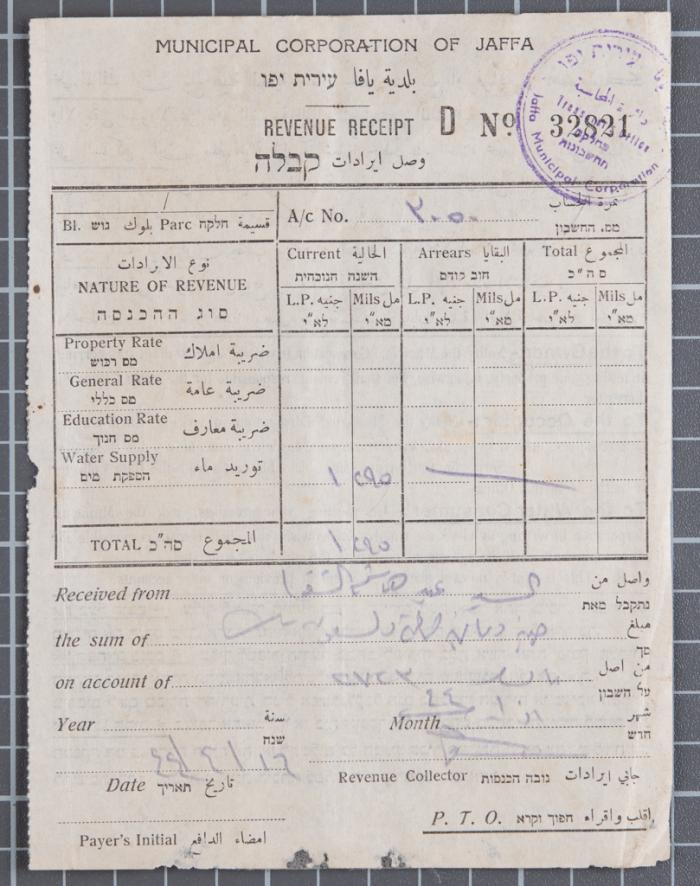 MUNICIPAL CORPORATION OF JAFFA
بلدية يافا עירית יפו
REVENUE RECEIPT D Nº 32821
وصل ايرادات קבלה
עירית יפו
Jaffa Municipal Corporation
Bl. גוש بلوك Parc חלקה قسيمة
A/c No. ٣٠٥٠ نمرة الحساب
מס. החשבון
نوع الايرادات
NATURE OF REVENUE
סוג ההכנסה
Current الحالية Arrears البقايا Total المجموع
השנה הנוכחית חוב קודם סה"כ
L.P. جنيه Mils مل L.P. جنيه Mils مل L.P. جنيه Mils مل
לא"י מא"י לא"י מא"י לא"י מא"י
Property Rate ضريبة املاك
מס רכוש
General Rate ضريبة عامة
מס כללי
Education Rate ضريبة معارف
מס חנוך
Water Supply توريد ماء
הספקת מים
١ ٢٩٥
TOTAL סה"כ المجموع ١ ٢٩٥
Received from السيد واصل من
נתקבל מאת
the sum of مبلغ
סך
on account of من اصل
על חשבון
Year سنة Month شهر
שנה חודש
Date תאריך تاريخ
Revenue Collector גובה הכנסות جابي ايرادات
P. T. O. הפוך וקרא اقلب واقراء
Payer's Initial امضاء الدافع